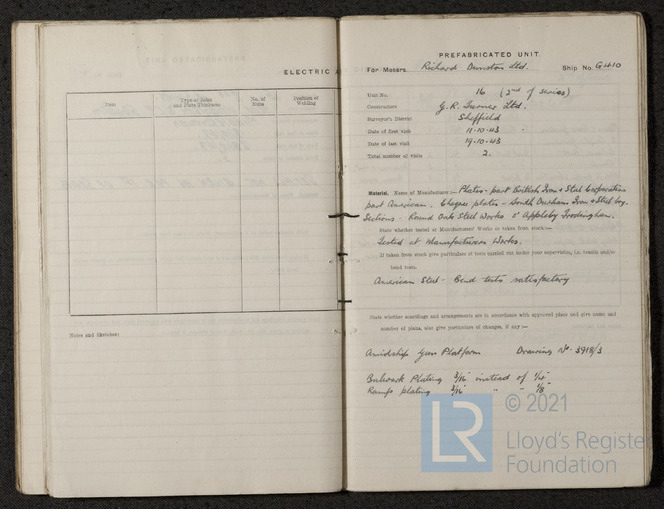 ELECTRIC A
Item
Type of Joint
and Plate Thickness
No. of
Runs
Position of
Welding
Notes and Sketches:
PREFABRICATED UNIT
For Messrs. Richard Dunston Ltd. Ship No. G410
Unit No. 16 (2nd of series)
Constructors G. R. Turner Ltd.
Surveyor's District Sheffield
Date of first visit 11.10.43
Date of last visit 19.10.43
Total number of visits 2.
Material. Name of Manufacturer:— Plates - part British Iron & Steel Corporation
part American. Chequer plates - South Durham Iron & Steel Coy.
Sections - Round Oak Steel Works & Appleby Frodingham.
State whether tested at Manufacturers' Works or taken from stock:—
Tested at Manufacturers Works.
If taken from stock give particulars of tests carried out under your supervision, i.e. tensile and/or
bend tests.
American Steel - Bend tests satisfactory
State whether scantlings and arrangements are in accordance with approved plans and give name and
number of plans, also give particulars of changes, if any :—
Amidship Gun Platform Drawing No. 3918/3
Bulwark Plating 3/16" instead of 1/4"
Ramps plating 3/16" " " 1/8"
© 2021
LR
Lloyd's Register
Foundation